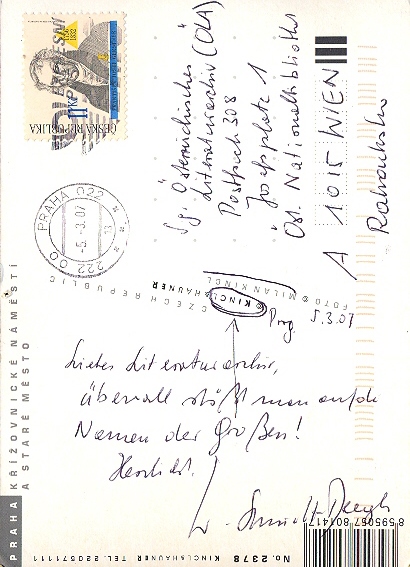 ČESKÁ REPUBLIKA
11 Kč
1756
1832
PRAHA 022
-5.-3.07
222 00
Sg. Österreichisches
Literaturarchiv (ÖLA)
Postfach 308
Josefsplatz 1
Öst. Nationalbibliothek
A 1015 WIEN
Rakousko
CZECH REPUBLIC © KINCL & HAUNER
FOTO © MILAN KINCL
Prag 5.3.07
Liebes Literaturarchiv,
überall stößt man auf die
Namen der Großen!
Herzlichst
PRAHA KŘIŽOVNICKÉ NÁMĚSTÍ
A STARÉ MĚSTO
No. 2378 KINCL&HAUNER TEL. 220571111
8 595067 801417